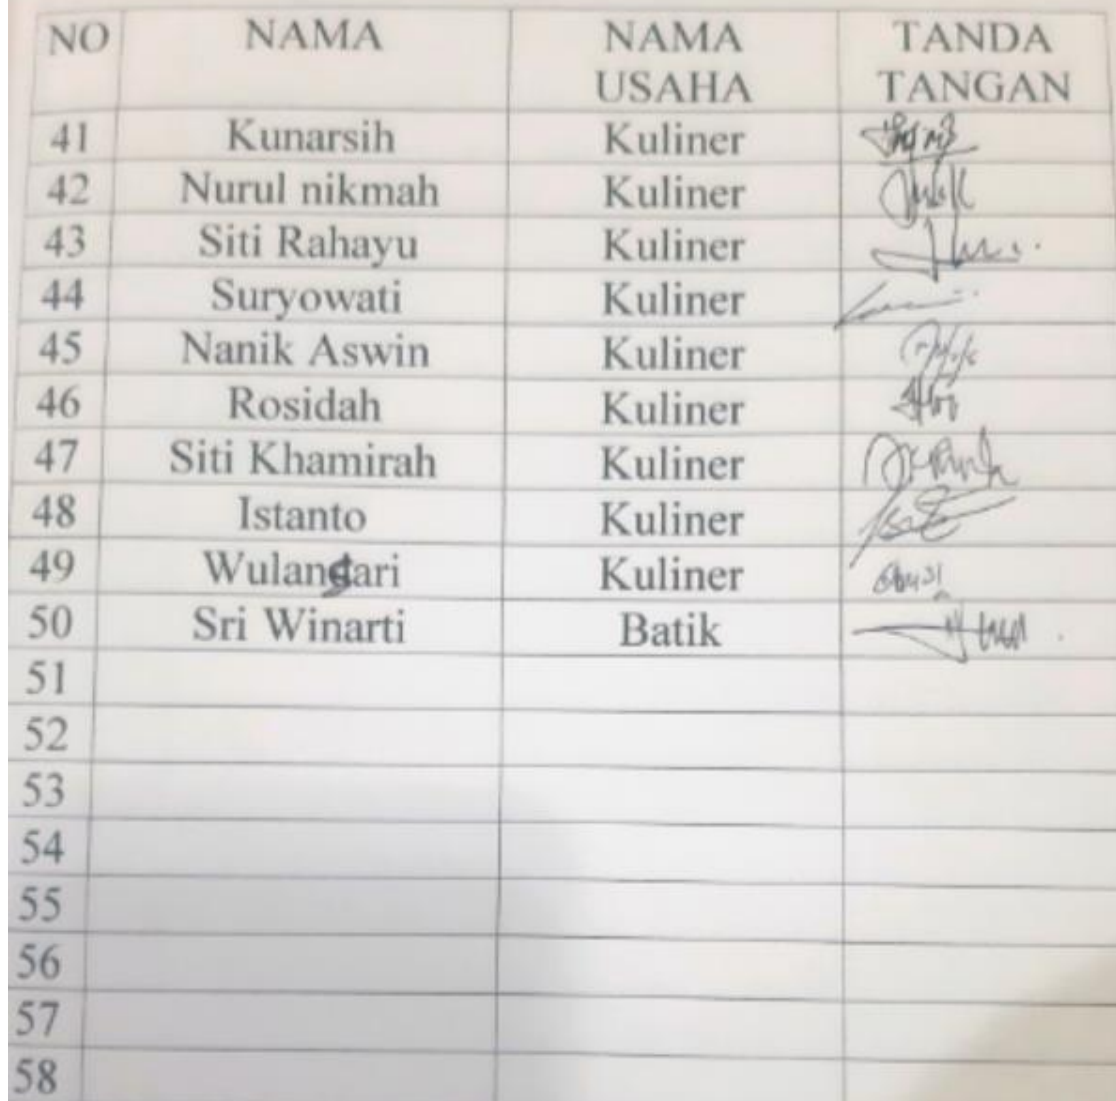 NO NAMA NAMA USAHA TANDA TANGAN
41 Kunarsih Kuliner
42 Nurul nikmah Kuliner
43 Siti Rahayu Kuliner
44 Suryowati Kuliner
45 Nanik Aswin Kuliner
46 Rosidah Kuliner
47 Siti Khamirah Kuliner
48 Istanto Kuliner
49 Wulansari Kuliner
50 Sri Winarti Batik
51
52
53
54
55
56
57
58